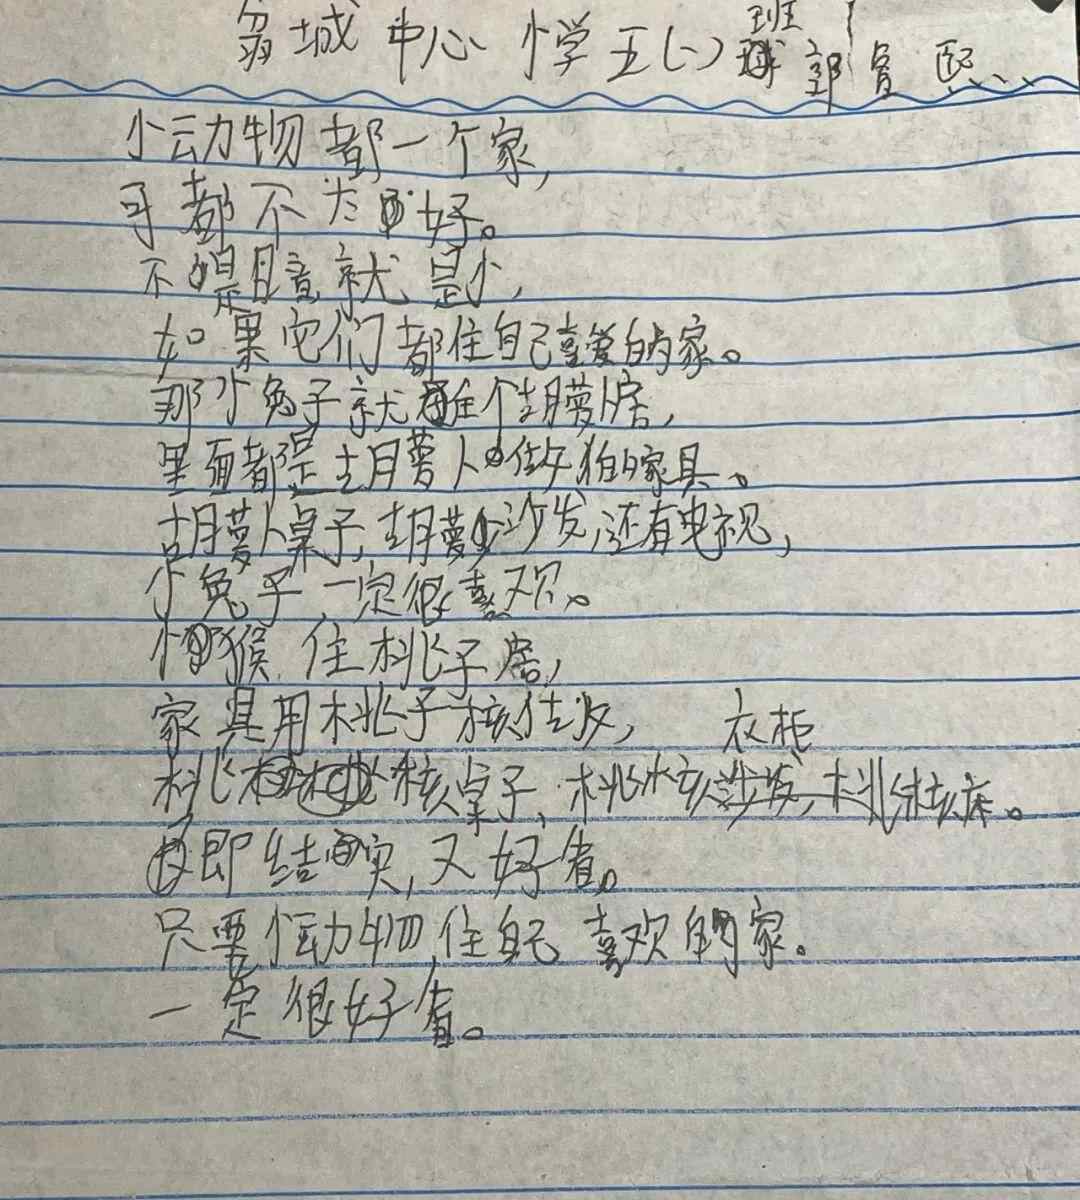 城中心小学五(一)班 郭 熙
小动物都一个家,
可都不太好。
不是暗就是小,
如果它们都住自己喜爱的家。
那小兔子就住个胡萝卜房,
里面都是胡萝卜做的家具。
胡萝卜桌子,胡萝卜沙发,还有电视,
小兔子一定很喜欢。
小猴住桃子房,
家具用桃子核做, 衣柜
桃核桌子,桃核,桃核床。
即结实,又好看。
只要小动物住自己喜欢的家。
一定很好看。